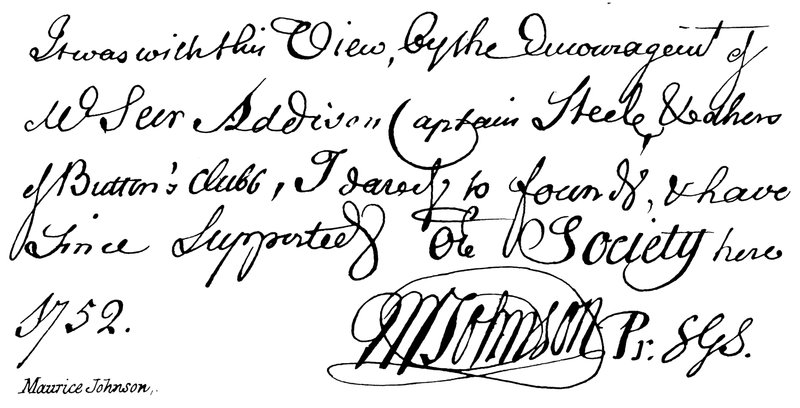 It was with this View, by the Encouragem't of
Mr Secr Addison Captain Steele, & others
of Button's Clubb, I dared to found, & have
Since Supported the Society here
1752. MJohnson Pr. SGS.
Maurice Johnson,.